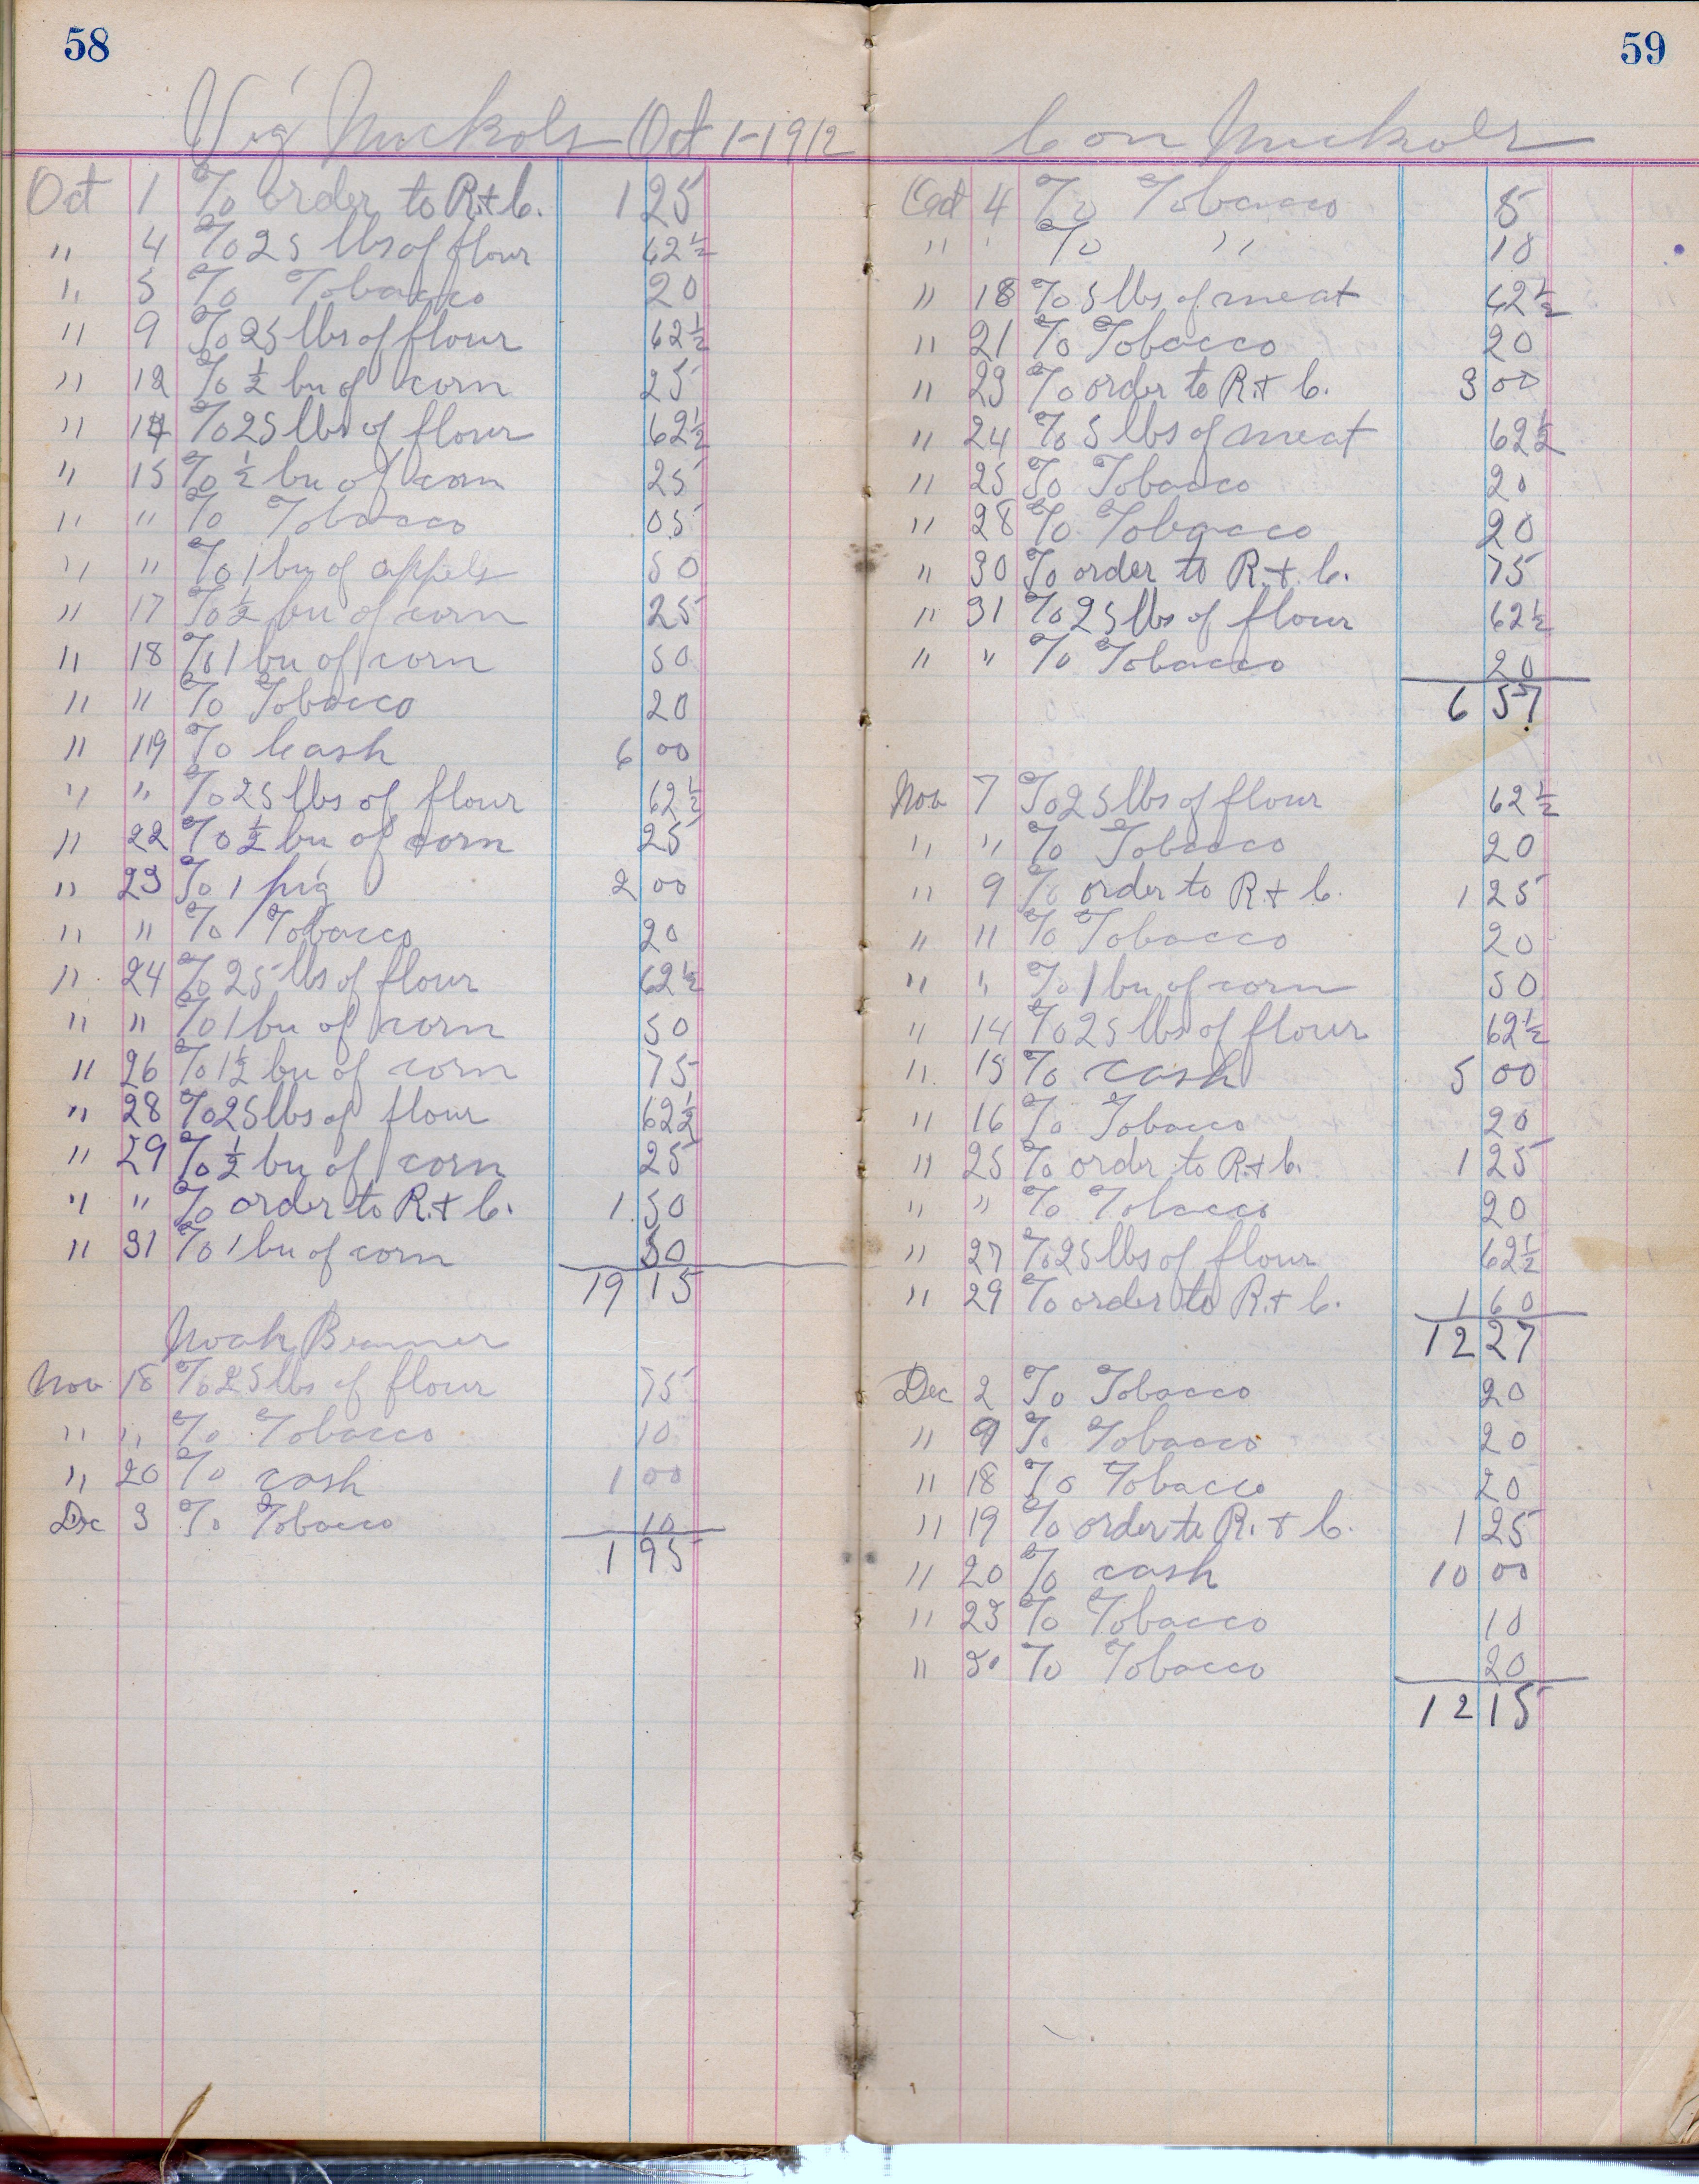 58
Vig Nuckols Oct 1-1912
Oct 1 To order to R. & C. 1 25
" 4 To 25 lbs of flour 62½
" 5 To Tobacco 20
" 9 To 25 lbs of flour 62½
" 12 To ½ bu of corn 25
" 14 To 25 lbs of flour 62½
" 15 To ½ bu of corn 25
" " To Tobacco 05
" " To 1 bu of appels 50
" 17 To ½ bu of corn 25
" 18 To 1 bu of corn 50
" " To Tobacco 20
" 19 To Cash 6 00
" " To 25 lbs of flour 62½
" 22 To ½ bu of corn 25
" 23 To 1 pig 2 00
" " To Tobacco 20
" 24 To 25 lbs of flour 62½
" " To 1 bu of corn 50
" 26 To 1½ bu of corn 75
" 28 To 25 lbs of flour 62½
" 29 To ½ bu of corn 25
" " To order to R. & C. 1.50
" 31 To 1 bu of corn 50
19 15
Noah Beamer
Nov 18 To 25 lbs of flour 75
" " To Tobacco 10
" 20 To cash 1 00
Dec 3 To Tobacco 10
1 95
59
Con Nuckols
Oct 4 To Tobacco 5
" " To " 10
" 18 To 5 lbs of meat 62½
" 21 To Tobacco 20
" 23 To order to R. & C. 3 00
" 24 To 5 lbs of meat 62½
" 25 To Tobacco 20
" 28 To Tobacco 20
" 30 To order to R. & C. 75
" 31 To 25 lbs of flour 62½
" " To Tobacco 20
6 57
Nov 7 To 25 lbs of flour 62½
" " To Tobacco 20
" 9 To order to R. & C. 1 25
" 11 To Tobacco 20
" " To 1 bu of corn 50
" 14 To 25 lbs of flour 62½
" 15 To cash 5 00
" 16 To Tobacco 20
" 25 To order to R. & C. 1 25
" " To Tobacco 20
" 27 To 25 lbs of flour 62½
" 29 To order to R. & C. 1 60
12 27
Dec 2 To Tobacco 20
" 9 To Tobacco 20
" 18 To Tobacco 20
" 19 To order to R. & C. 1 25
" 20 To cash 10 00
" 23 To Tobacco 10
" 30 To Tobacco 20
12 15